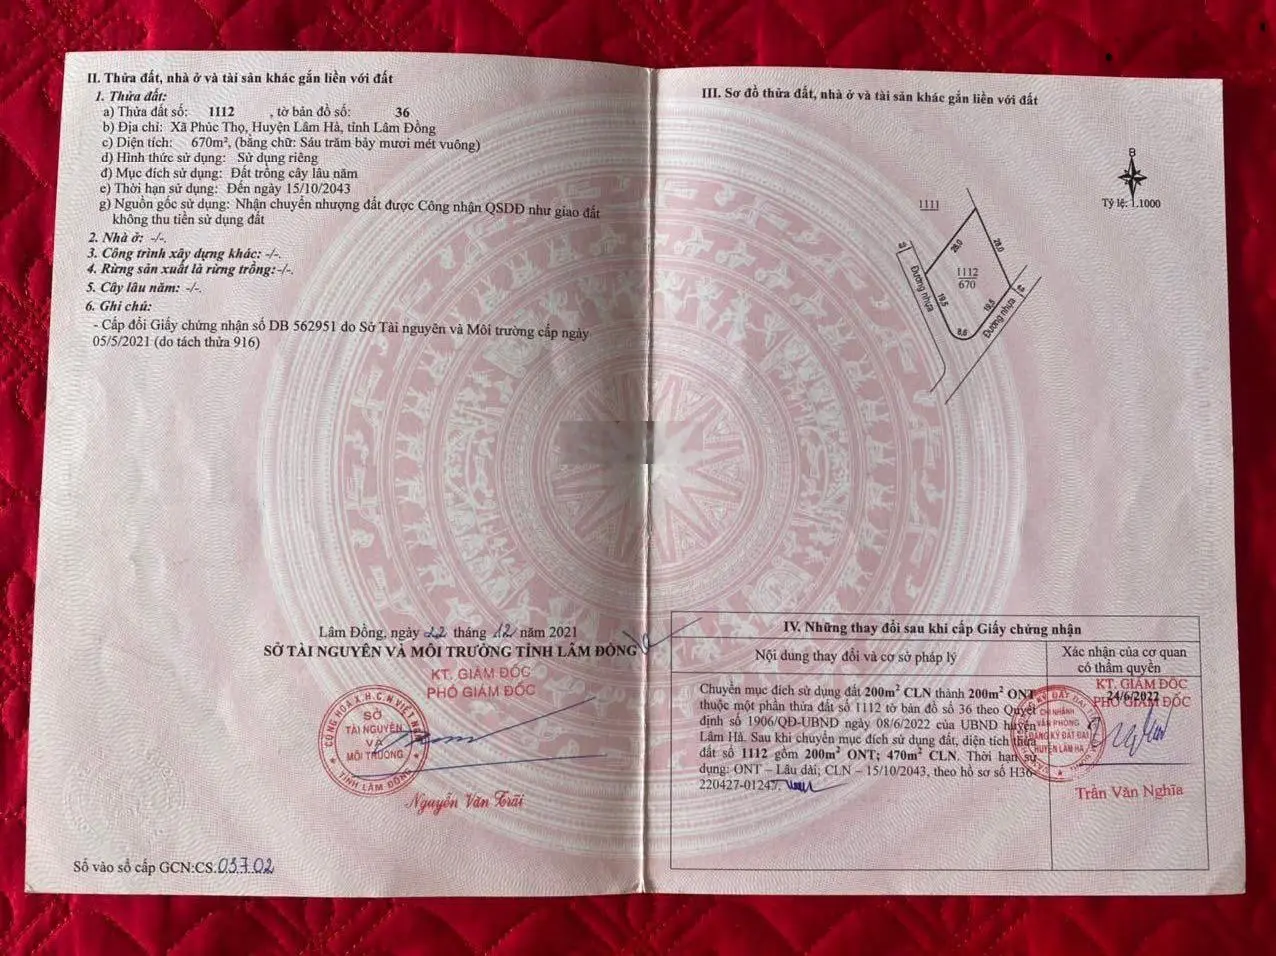 II. Thửa đất, nhà ở và tài sản khác gắn liền với đất
1. Thửa đất:
a) Thửa đất số: 1112 , tờ bản đồ số: 36
b) Địa chỉ: Xã Phúc Thọ, Huyện Lâm Hà, tỉnh Lâm Đồng
c) Diện tích: 670m², (bằng chữ: Sáu trăm bảy mươi mét vuông)
d) Hình thức sử dụng: Sử dụng riêng
đ) Mục đích sử dụng: Đất trồng cây lâu năm
e) Thời hạn sử dụng: Đến ngày 15/10/2043
g) Nguồn gốc sử dụng: Nhận chuyển nhượng đất được Công nhận QSDĐ như giao đất
không thu tiền sử dụng đất
2. Nhà ở: -/-.
3. Công trình xây dựng khác: -/-.
4. Rừng sản xuất là rừng trồng:-/-.
5. Cây lâu năm: -/-.
6. Ghi chú:
- Cấp đổi Giấy chứng nhận số DB 562951 do Sở Tài nguyên và Môi trường cấp ngày
05/5/2021 (do tách thửa 916)
Lâm Đồng, ngày 22 tháng 12 năm 2021
SỞ TÀI NGUYÊN VÀ MÔI TRƯỜNG TỈNH LÂM ĐỒNG
KT. GIÁM ĐỐC
PHÓ GIÁM ĐỐC
CỘNG HOÀ X.H.C.N VIỆT NAM
SỞ
TÀI NGUYÊN
VÀ
MÔI TRƯỜNG
TỈNH LÂM ĐỒNG
Nguyễn Văn Trãi
Số vào sổ cấp GCN:CS.03702
III. Sơ đồ thửa đất, nhà ở và tài sản khác gắn liền với đất
B
Tỷ lệ: 1.1000
1111
28,0
28,0
1112
670
19,5
19,5
8,6
Đường nhựa
Đường nhựa
IV. Những thay đổi sau khi cấp Giấy chứng nhận
Nội dung thay đổi và cơ sở pháp lý
Xác nhận của cơ quan
có thẩm quyền
Chuyển mục đích sử dụng đất 200m² CLN thành 200m² ONT
thuộc một phần thửa đất số 1112 tờ bản đồ số 36 theo Quyết
định số 1906/QĐ-UBND ngày 08/6/2022 của UBND huyện
Lâm Hà. Sau khi chuyển mục đích sử dụng đất, diện tích thửa
đất số 1112 gồm 200m² ONT; 470m² CLN. Thời hạn sử
dụng: ONT – Lâu dài; CLN – 15/10/2043, theo hồ sơ số H36-
220427-01247.
KT. GIÁM ĐỐC
24/6/2022
PHÓ GIÁM ĐỐC
CHI NHÁNH
VĂN PHÒNG
ĐĂNG KÝ ĐẤT ĐAI
HUYỆN LÂM HÀ
Trần Văn Nghĩa